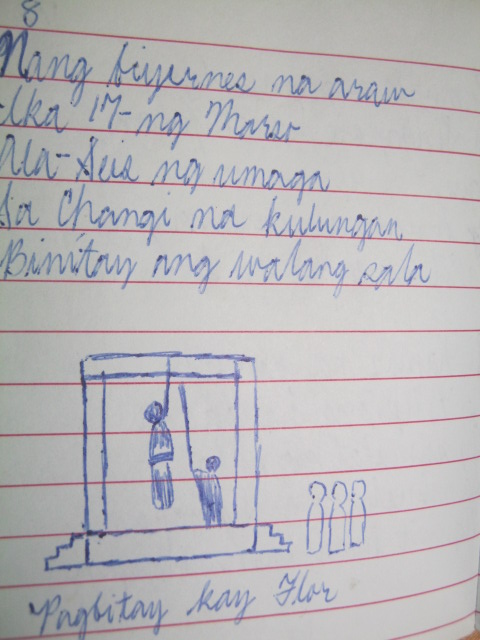 8
Nang biyernes na araw
Ika 17-ng Marso
Ala-Seis ng umaga
Sa Changi na kulungan
Binitay ang walang sala
Pagbitay kay Flor